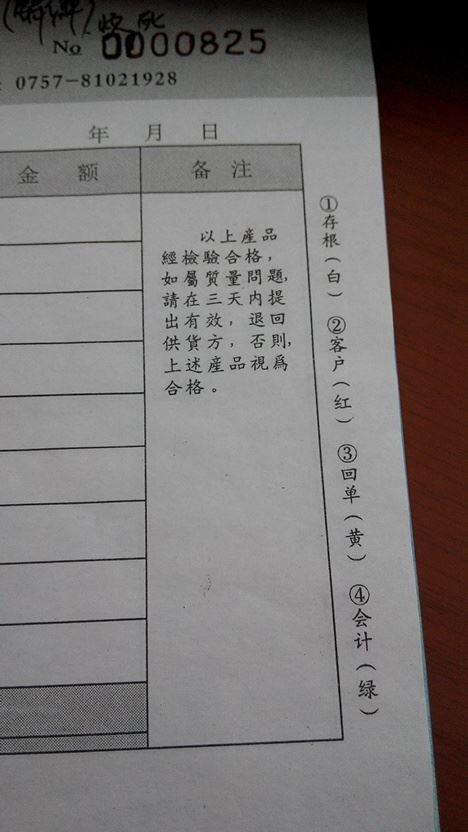 No 0000825
0757-81021928
年 月 日
金 额
备 注
以上産品
經檢驗合格，
如屬質量問題，
請在三天内提
出有效，退回
供貨方，否則，
上述産品視爲
合格。
①存根（白） ②客户（红） ③回单（黄） ④会计（绿）